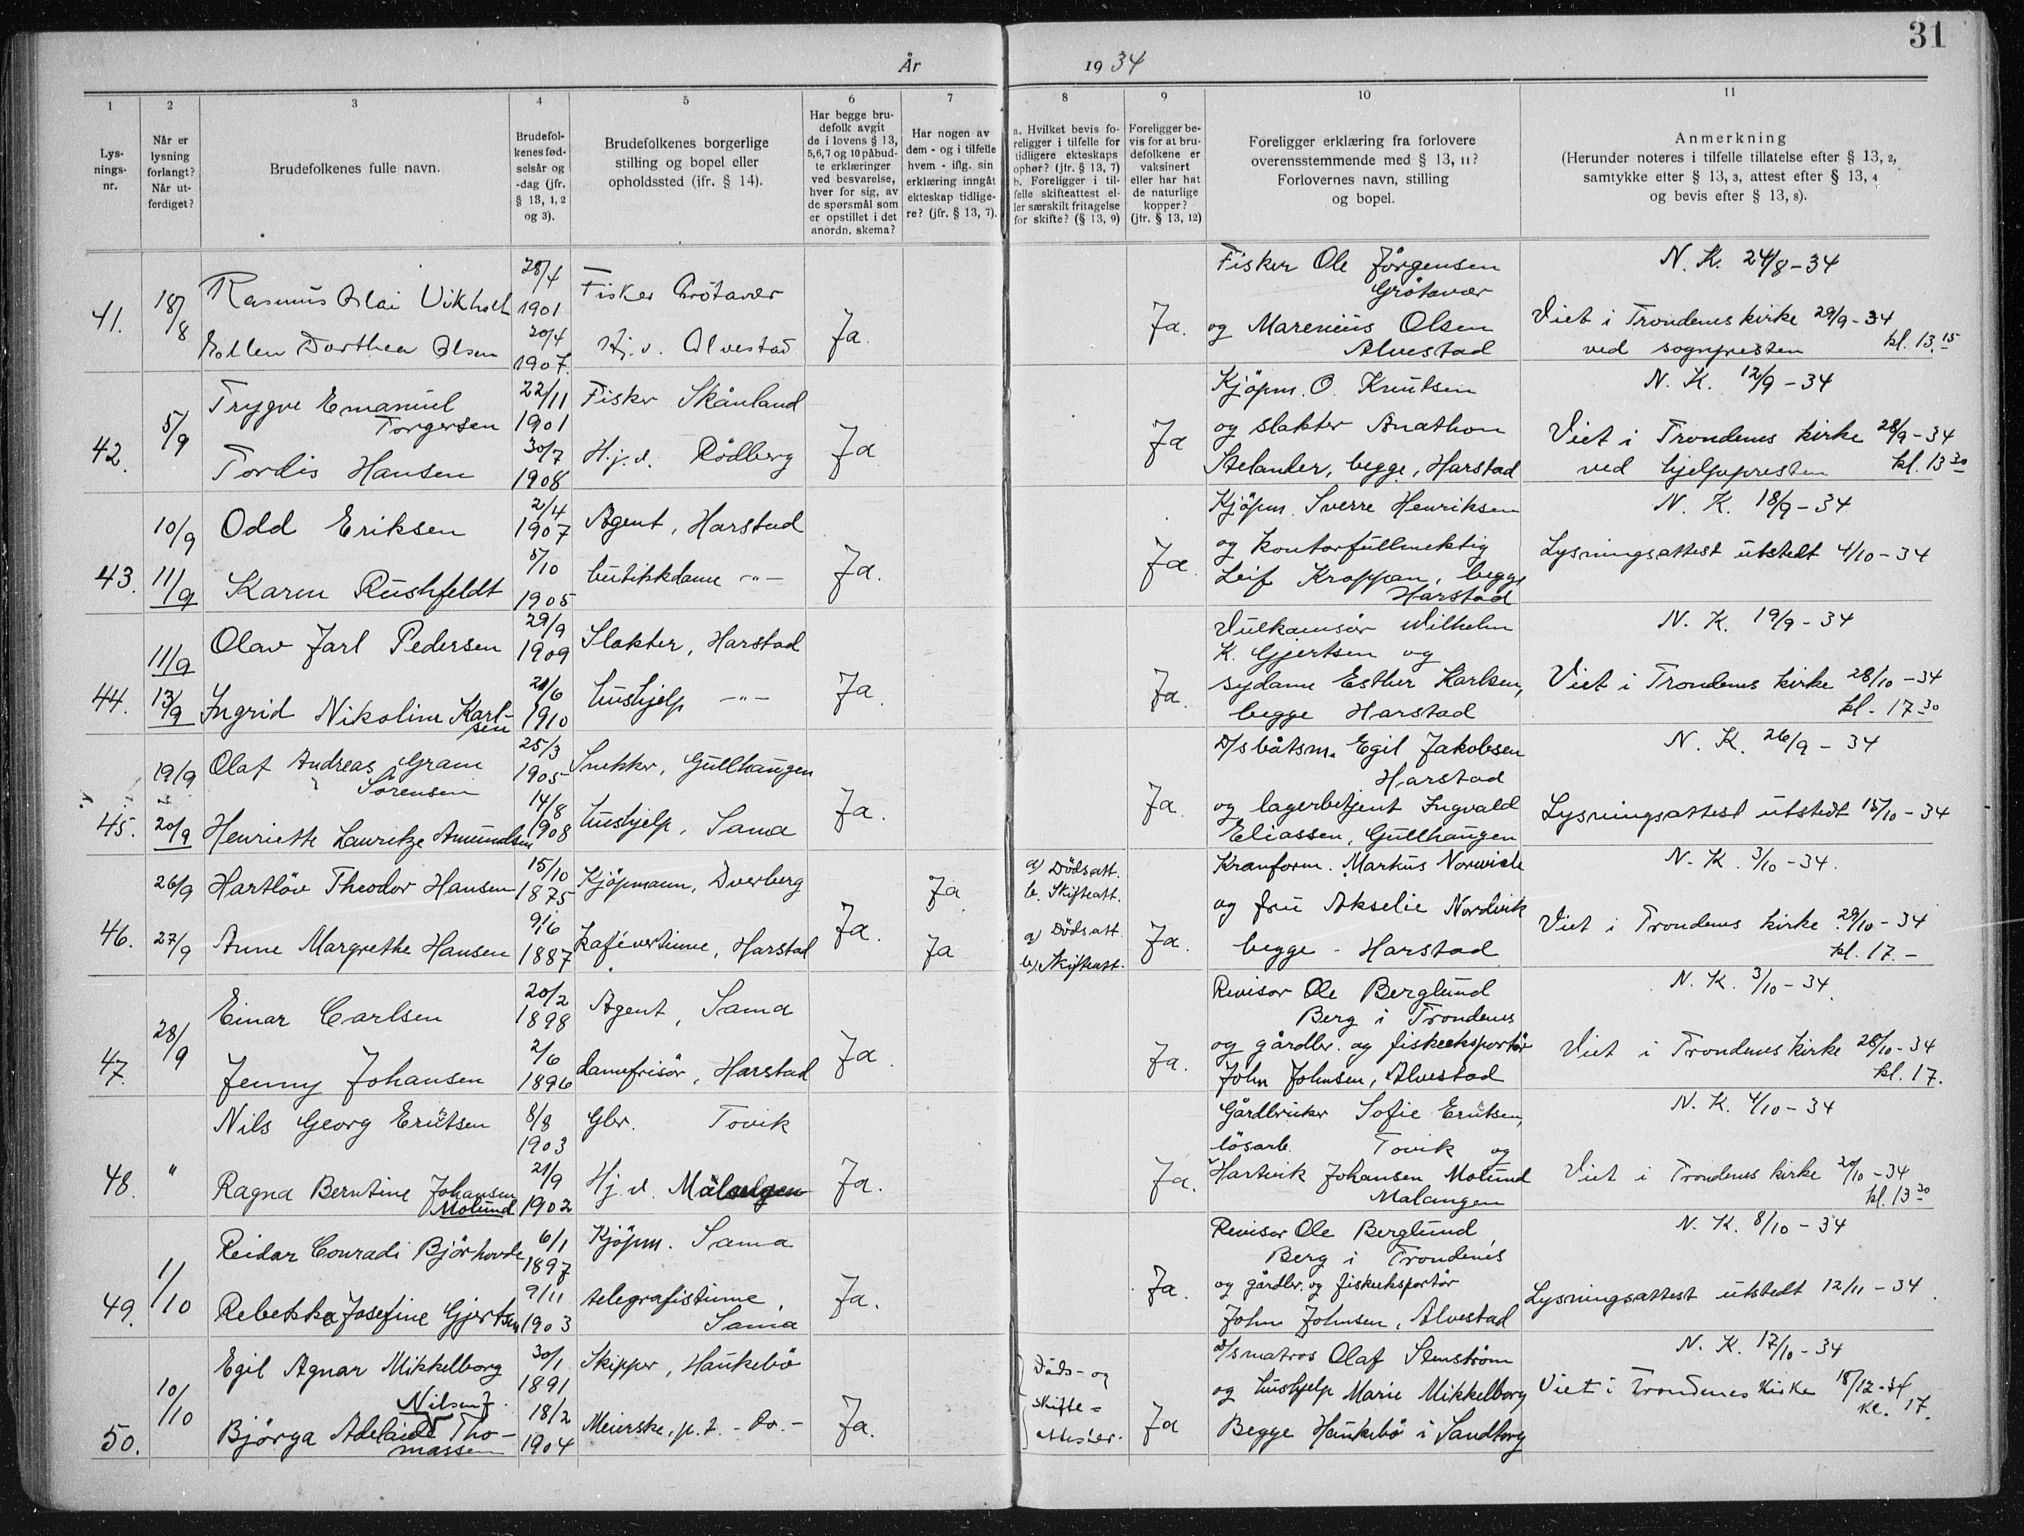 31
År 1934
1 2 3 4 5 6 7 8 9 10 11
Lys-
nings-
nr.
Når er
lysning
forlangt?
Når ut-
ferdiget?
Brudefolkenes fulle navn.
Brudefol-
kenes fød-
selsår og
-dag (jfr.
§ 13, 1, 2
og 3).
Brudefolkenes borgerlige
stilling og bopel eller
opholdssted (jfr. § 14).
Har begge bru-
defolk avgit
de i lovens § 13,
5,6,7 og 10 påbud-
te erklæringer
ved besvarelse,
hver for sig, av
de spørsmål som
er opstillet i det
anordn. skema?
Har nogen av
dem - og i tilfelle
hvem - iflg. sin
erklæring inngåt
ekteskap tidlige-
re? (jfr. § 13, 7).
a. Hvilket bevis fo-
religger i tilfelle for
tidligere ekteskaps
ophør? (jfr. § 13, 7)
b. Foreligger i til-
felle skifteattest el-
ler særskilt fritagelse
for skifte? (§ 13, 9)
Foreligger be-
vis for at bru-
defolkene er
vaksinert
eller har hat
de naturlige
kopper?
(jfr. § 13, 12)
Foreligger erklæring fra forlovere
overensstemmende med § 13, 11?
Forlovernes navn, stilling
og bopel.
Anmerkning
(Herunder noteres i tilfelle tillatelse efter § 13, 2,
samtykke efter § 13, 3, attest efter § 13, 4
og bevis efter § 13, 8).
41.
18/8
Rasmus Olai Vikholt
28/4
1901
Fisker Grötavær
Ellen Dorthea Olsen
20/4
1907.
Hj.d. Alvestad
Ja.
Ja.
Fisker Ole Jörgensen
Grötavær
og Marenius Olsen
Alvestad
N. K. 24/8-34
Viet i Trondenes kirke 29/9-34
ved sognpresten kl. 13.15
42.
5/9
Trygve Emanuel
Torgersen
22/11
1901
Fisker Skånland
Tordis Hansen
30/7
1908
H.j.d. Rödberg
Ja
Ja
Kjöpm. O. Knutsen
og slakter Anathon
Stelander, begge, Harstad
N. K. 12/9-34
Viet i Trondenes kirke 28/9-34
ved hjelpepresten kl. 13 30
43.
10/9
11/9
Odd Eriksen
2/4
1907
Agent, Harstad
Karen Rushfeldt
5/10
1905
butikkdame -"-
Ja.
Ja.
Kjöpm. Sverre Henriksen
og kontorfullmektig
Leif Kroppan, begge
Harstad
N. K. 18/9-34
Lysningsattest utstedt 4/10-34
44.
11/9
13/9
Olav Jarl Pedersen
29/9
1909
Slakter, Harstad
Ingrid Nikoline Karl-
sen
21/6
1910
hushjelp -"-
Ja.
Ja.
Vulkanisör Wilhelm
K. Gjertsen og
sydame Esther Karlsen,
begge Harstad
N. K. 19/9-34
Viet i Trondenes kirke 28/10-34
kl. 17-30
45.
19/9
20/9
Olaf Andreas Gram
Sörensen
25/3
1905
Snekker, Gullhaugen
Henriette Lauritze Amundsen
14/8
1908
hushjelp, Sama
Ja.
Ja.
D/s båtsm. Egil Jakobsen
Harstad
og lagerbetjent Ingvald
Eliassen, Gullhaugen
N. K. 26/9-34
Lysningsattest utstedt 15/10-34
46.
26/9
27/9
Hartlöv Theodor Hansen
15/10
1875
Kjöpmann, Dverberg
Anne Margrethe Hansen
9/6
1887
kafévertinne, Harstad
Ja.
Ja
Ja
a) Dödsatt.
b. Skifteatt.
a) Dödsatt.
b). Skifteatt.
Ja.
Kranform. Markus Nordvik
og fru Akselie Nordvik
begge - Harstad
N. K. 3/10-34.
Viet i Trondenes kirke 29/10-34
kl. 17.-
47.
28/9
Einar Carlsen
20/2
1898
Agent, Sama
Jenny Johansen
2/6
1896
damefrisör, Harstad
Ja.
Ja.
Revisor Ole Berglund
Berg i Trondenes
og gårdbr. og fiskeeksportör
John Johnsen, Alvestad
N. K. 3/10-34.
Viet i Trondenes kirke 28/10-34
kl. 17.
48.
"
Nils Georg Erutsen
8/8
1903
Gbr. Tovik
Ragna Berntine Johansen
Molund
21/9
1902
Hj.d. Malangen
Ja.
Ja.
Gårdbruker Sofie Erutsen,
Tovik og
lösarb.
Hartvik Johansen Molund
Malangen
N. K. 4/10-34
Viet i Trondenes kirke 20/10-34
kl. 13 30
49.
1/10
Reidar Conradi Bjørhovde
6/1
1897
Kjöpm. Sama
Rebekka Josefine Gjertsen
9/11
1903
telegrafistinne,
Sama
Ja.
Ja.
Revisor Ole Berglund,
Berg i Trondenes
og gårdbr. og fiskeeksportör
John Johnsen, Alvestad
N. K. 8/10-34
Lysningsattest utstedt 12/11-34.
50.
10/10
Egil Agnar Mikkelborg
30/1
1891
Skipper, Haukebö
Nilsen f.
Björga Adelaide Tho-
massen
18/2
1904
Meierske, p.t. - Do -
Ja.
Döds- og
skifte-
attester.
Ja
D/smatros Olaf Stenström
og hushjelp Marie Mikkelborg
Begge Haukebö i Sandtorg
N. K. 17/10-34
Viet i Trondenes Kirke 18/12-34
kl. 17.